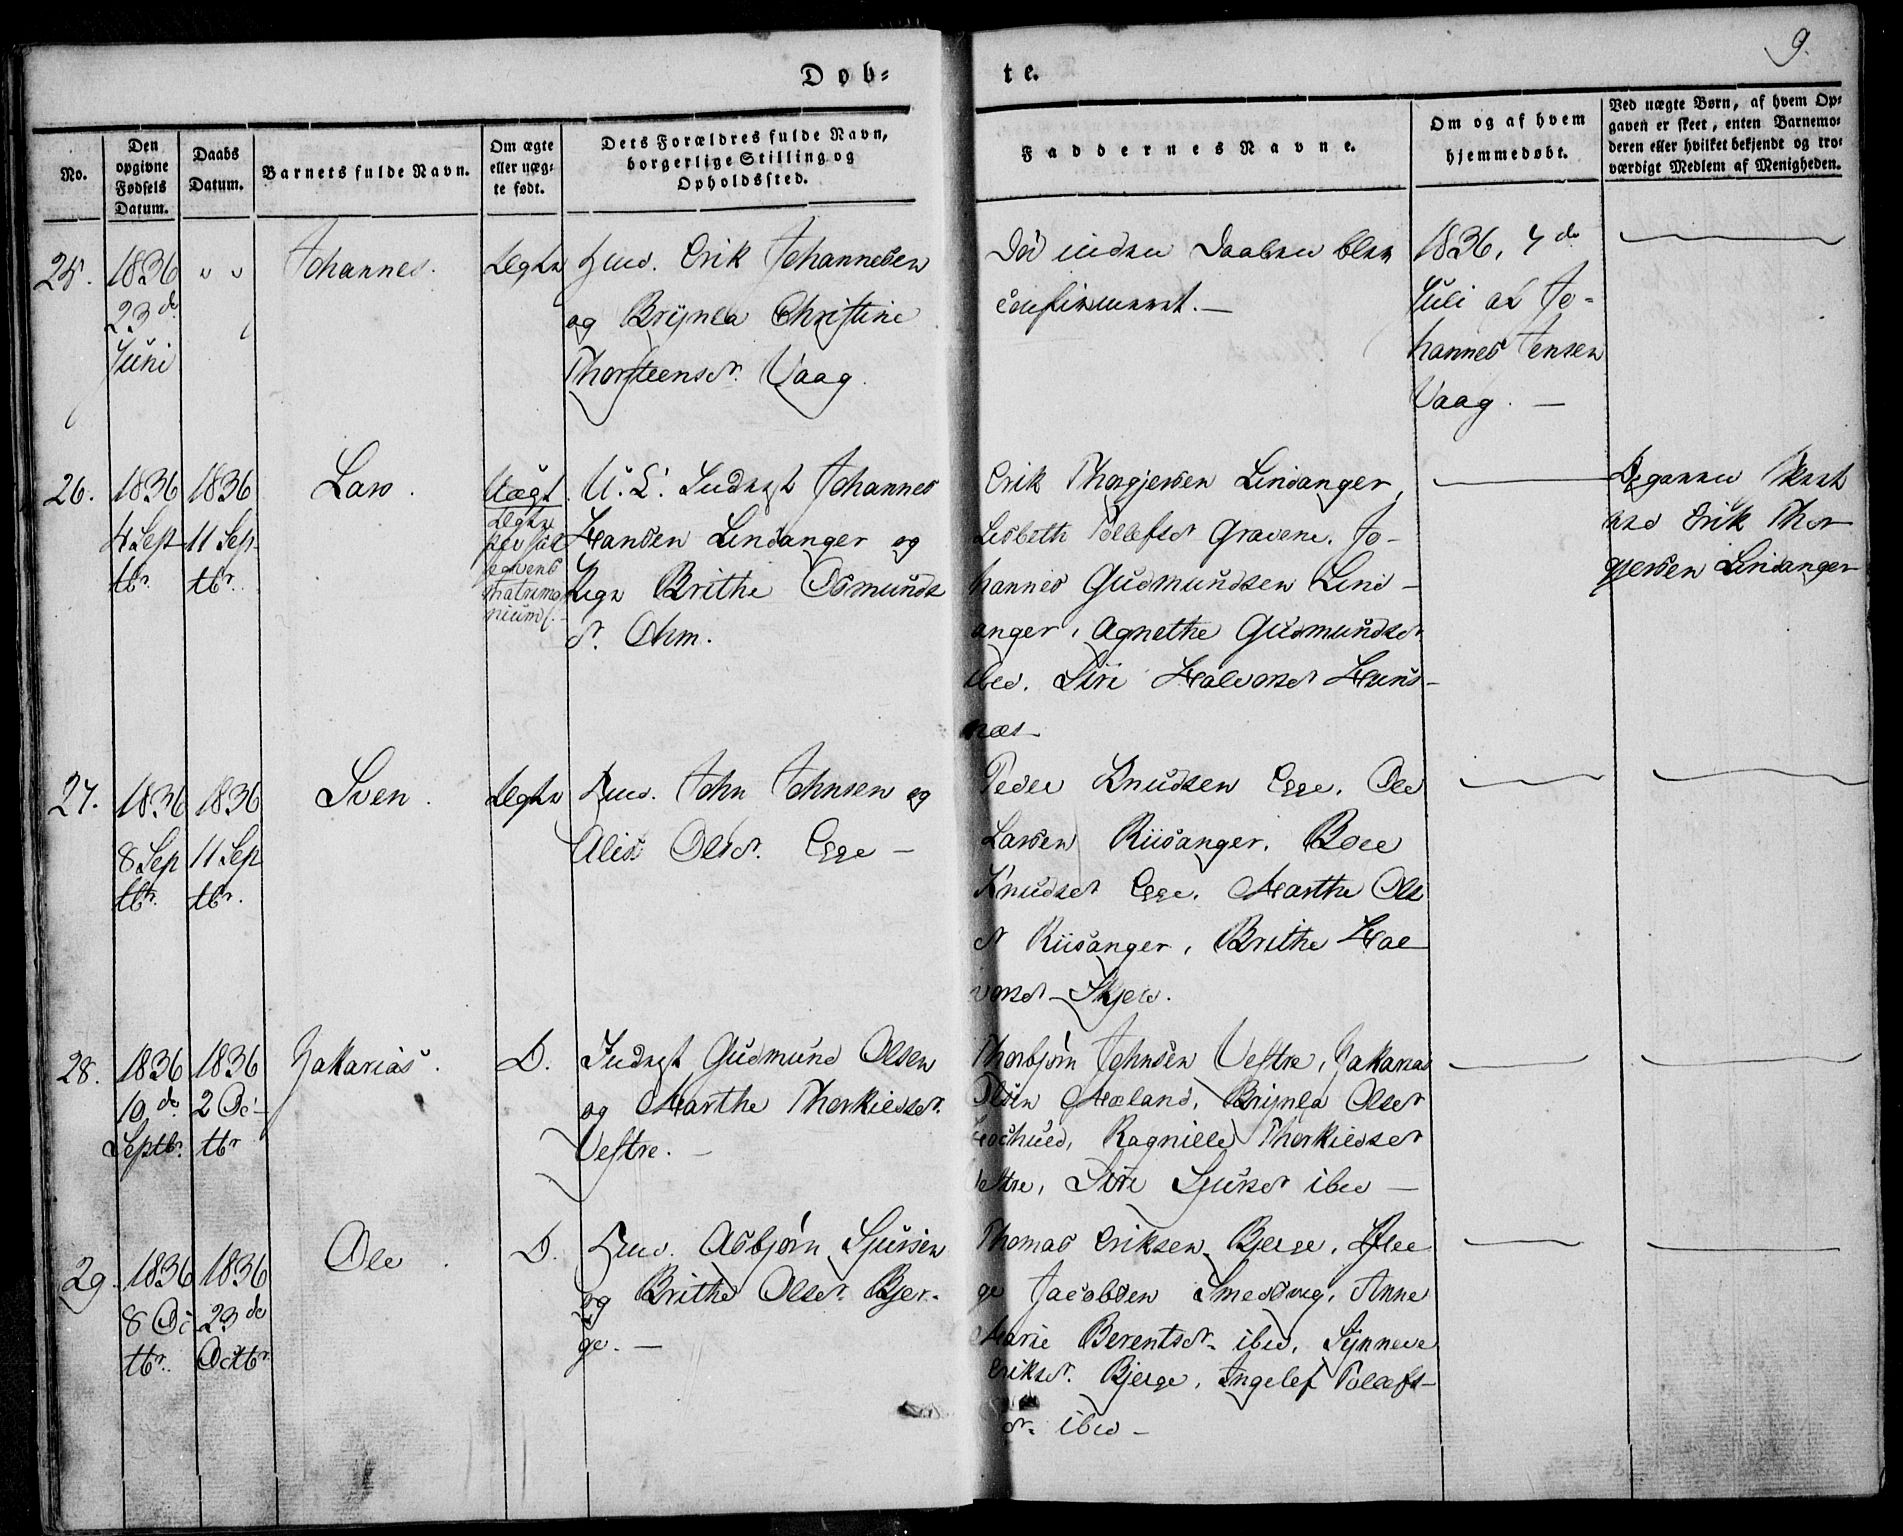 9.
Døb= te.
No.
Den
opgivne
Fødsels
Datum.
Daabs
Datum.
Barnets fulde Navn.
Om ægte
eller uæg=
te født.
Dets Forældres fulde Navn,
borgerlige Stilling og
Opholdssted.
Faddernes Navne.
Om og af hvem
hjemmedøbt.
Ved uægte Børn, af hvem Op=
gaven er skeet, enten Barnemo=
deren eller hvilket bekjendt og tro=
værdigt Medlem af Menigheden.
25.
1836
23de
Juni
" "
Johannes.
Ægte
Huus. Erik Johannesen
og Brynla Christine
Thorsteensdr. Vaag.
Død inden Daaben blev
confirmeret. —
1836, 4de
Juli af Jo-
hannes Jensen
Vaag. —
26.
1836
4 Sept
tbr.
1836
11 Sep-
tbr.
Lars.
Uægt
Ægte
per sub
seqvens
matrimo
nium
U. L. Inds Johannes
Hansen Lindanger og
Pige Brithe Osmunds
dr. Ohm.
Erik Thorgjersen Lindanger,
Lisbeth Tollefsdr Gravene. Jo-
hannes Gudmundsen Lind-
anger, Agnethe Gudmundsdr
ibid. Siri Halvorsdr Huus-
næs —
Opgaven skeet
ved Erik Thor
gjersen Lindanger
27.
1836
8 Sep
tbr.
1836
11 Sep
tbr.
Sven.
Ægte
Huus. John Johnsen og
Alis Olsdr. Egge —
Peder Knudsen Egge. Ole
Larsen Riisanger. Boel
Knudsdr Egge. Marthe Ols
dr Riisanger, Brithe Hal
vorsdr Skjeld.
28.
1836
10de
Septbr.
1836
2 Oc-
tbr
Zakarias.
D.
Inds Gudmund Olsen
og Marthe Thorkildsdr.
Vestre. —
Thorbjørn Johnsen Vestre, Zakarias
Olsen Mæland, Brynla Olsdr
Ragnille Thorkildsdr
Vestre, Siri Sjursdr ibid —
29.
1836
8 Oc
tbr.
1836
23de
Octbr
Ole.
D.
Huus. Asbjørn Sjursen
og Brithe Olsdr. Bjer-
ge. —
Thomas Eriksen Bjerge,
Jacobsen Smedsvig, Anne
Marie Berentsdr ibid, Synneve
Eriksdr. Bjerge, Ingelef Tolefs-
dr. ibid —